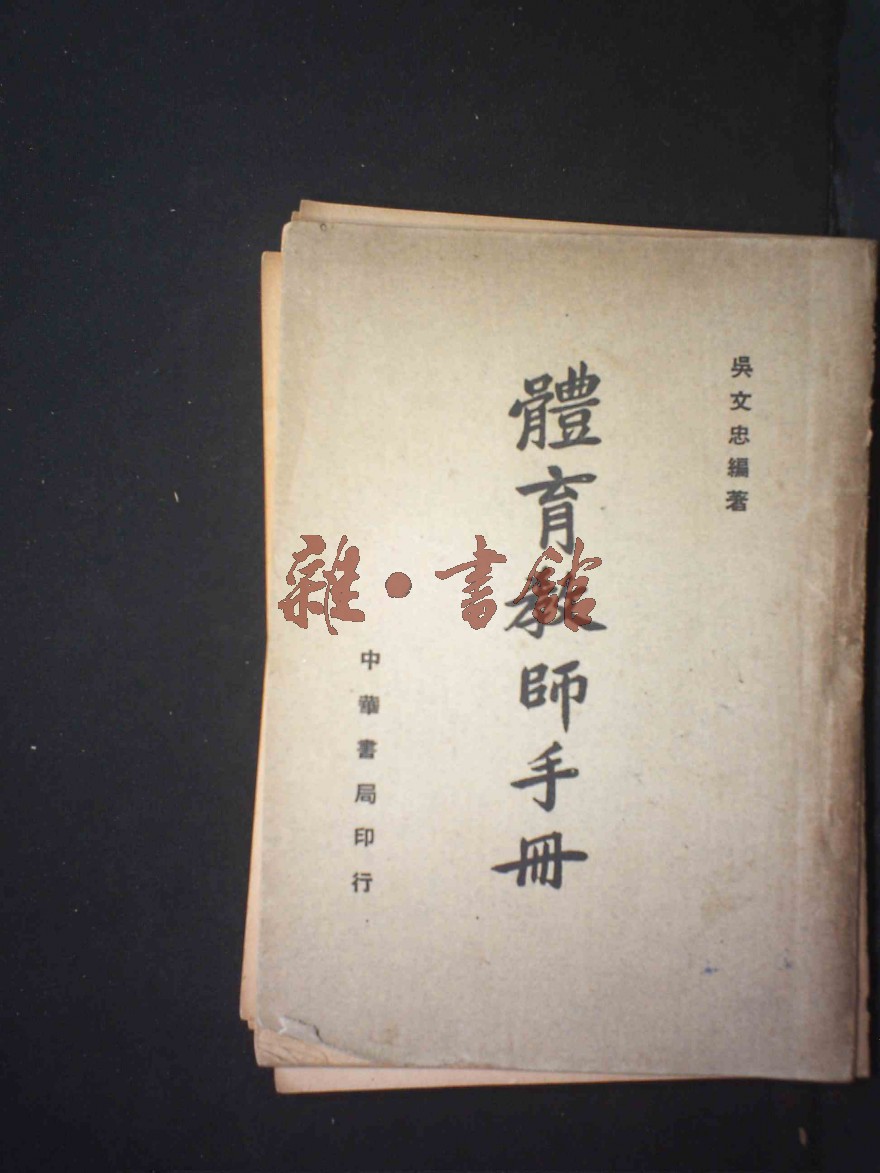 吳文忠編著
體育教師手冊
中華書局印行
雜·書館